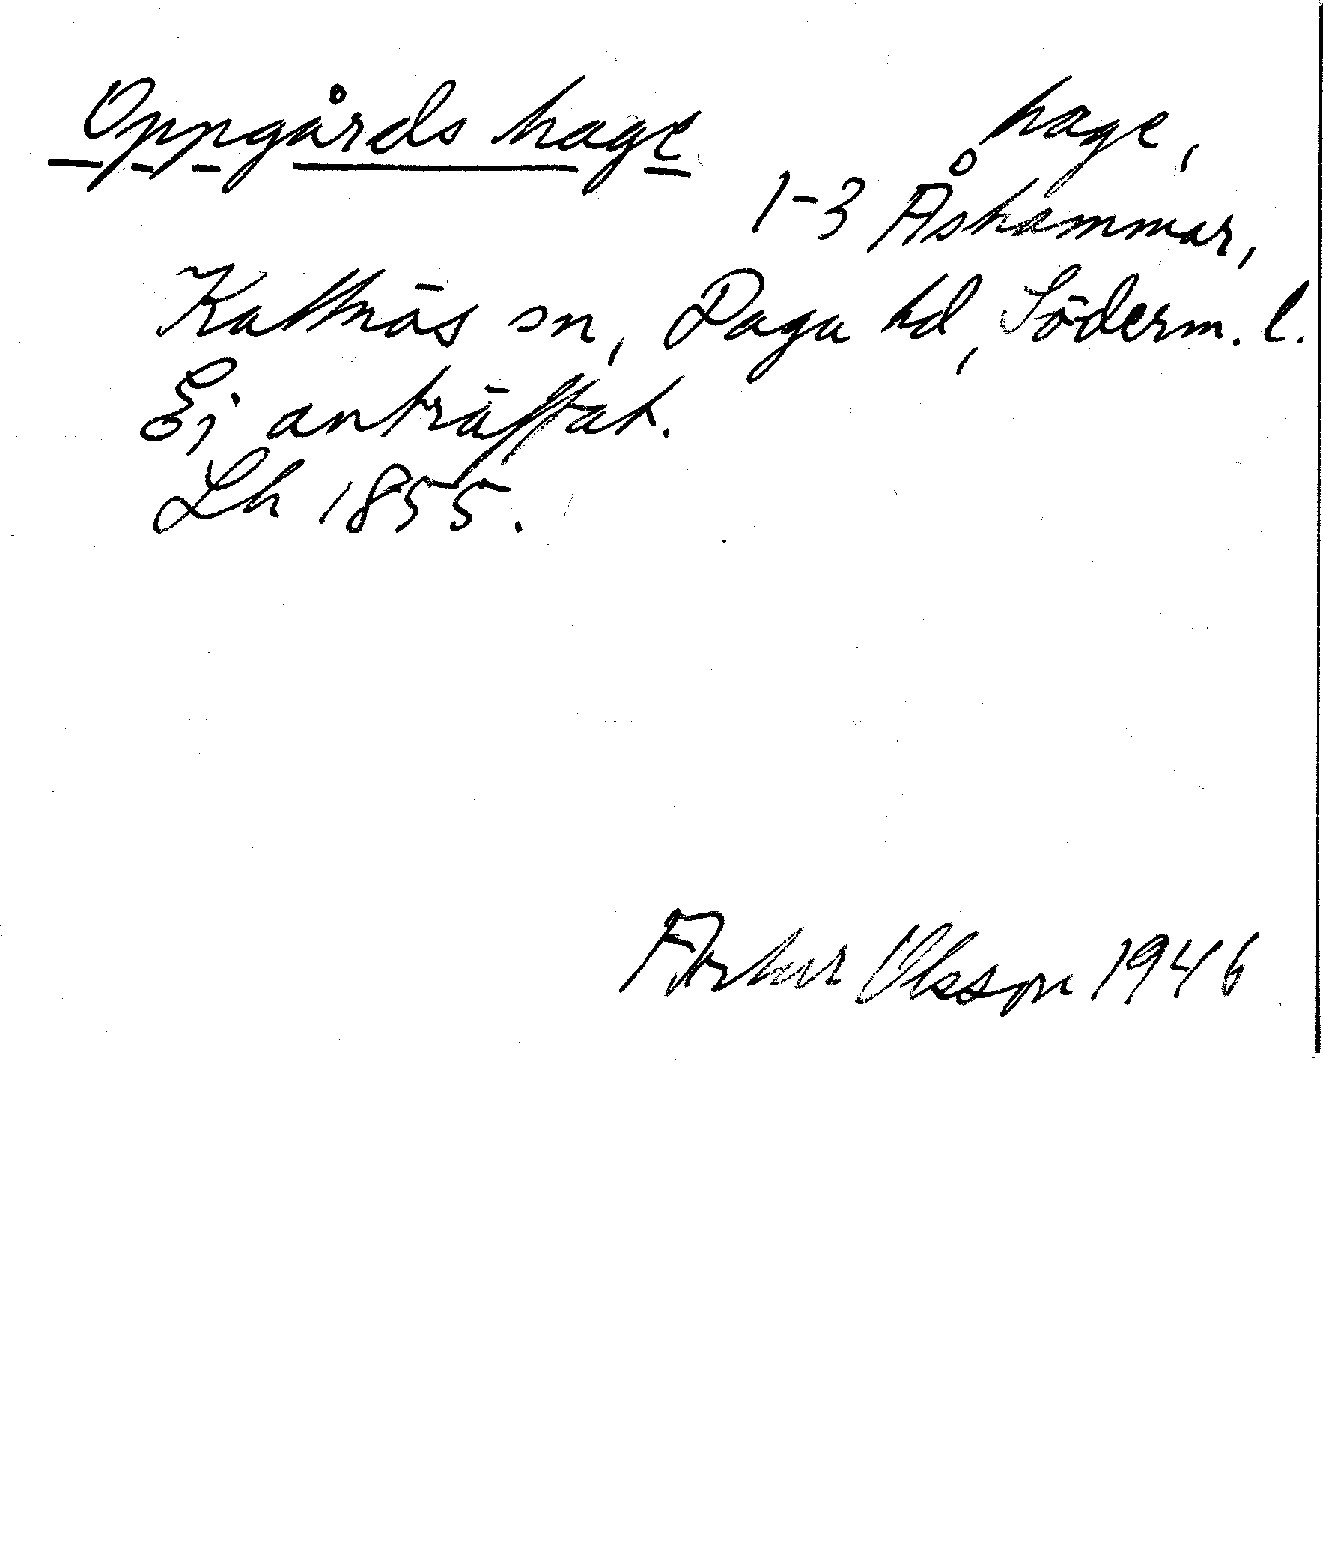 Oppgårds hage hage,
1-3 Åshammar,
Kattnäs sn, Daga hd, Söderm. l.
Ej anträffat.
Lh 1855.
Arthur Olsson 1946